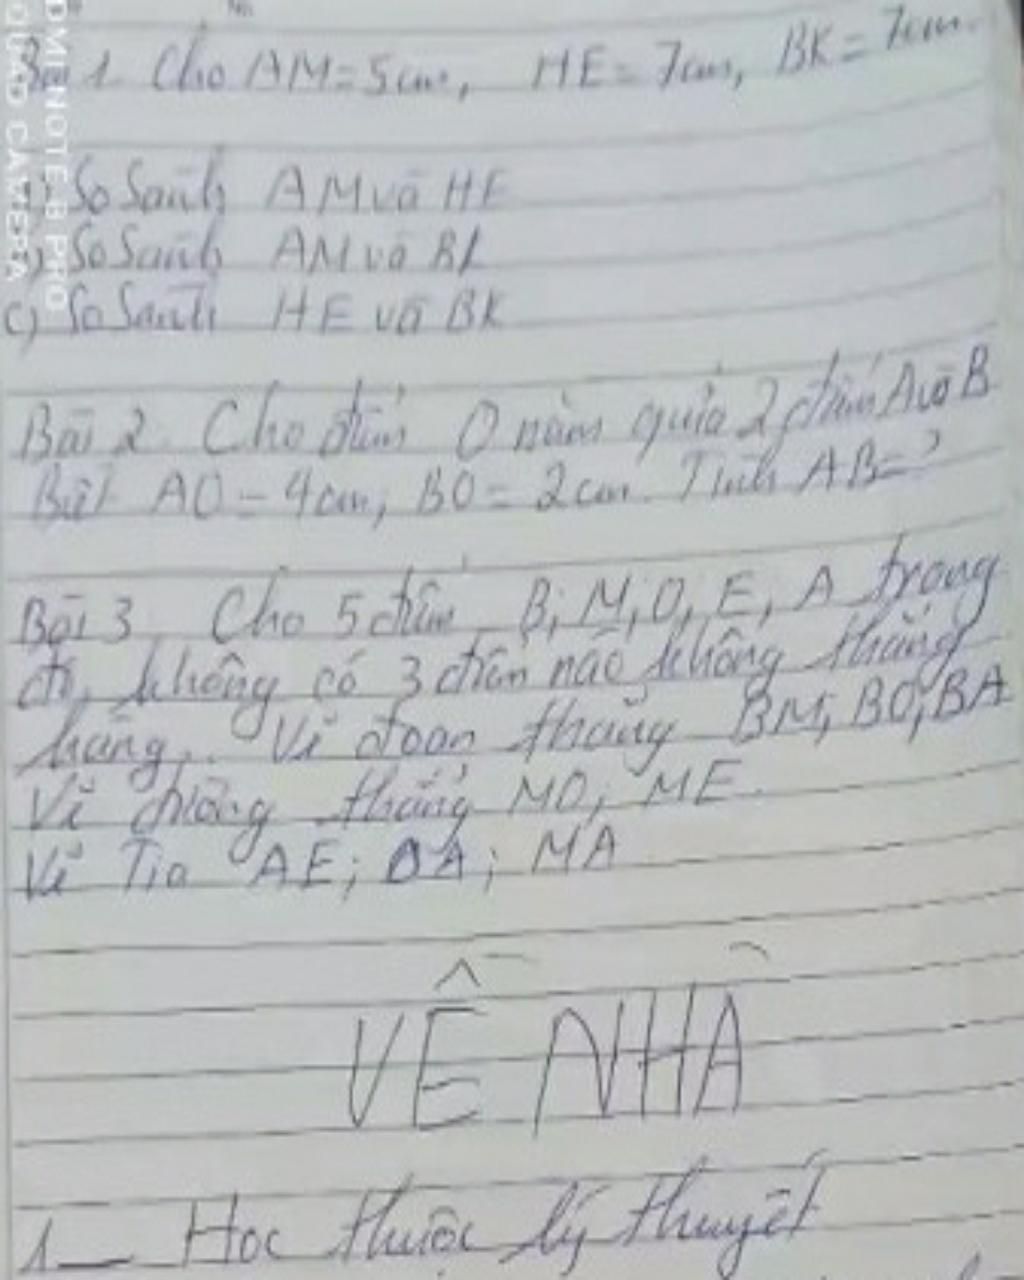 Bài 1. Cho AM = 5cm, HE = 7cm, BK = 7cm.
a) So Sánh AM và HE
b) So Sánh AM và BK
c) So Sánh HE và BK
Bài 2. Cho điểm O nằm giữa 2 điểm A và B
Biết AO = 4cm, BO = 2cm. Tính AB = ?
Bài 3. Cho 5 điểm B, M, O, E, A trong
đó, không có 3 điểm nào không thẳng
hàng. Vẽ đoạn thẳng BM, BO, BA
Vẽ đường thẳng MO; ME.
Vẽ Tia AE; OA; MA
VỀ NHÀ
1_ Học thuộc lý thuyết
REDMI NOTE 8 PRO
QUAD CAMERA